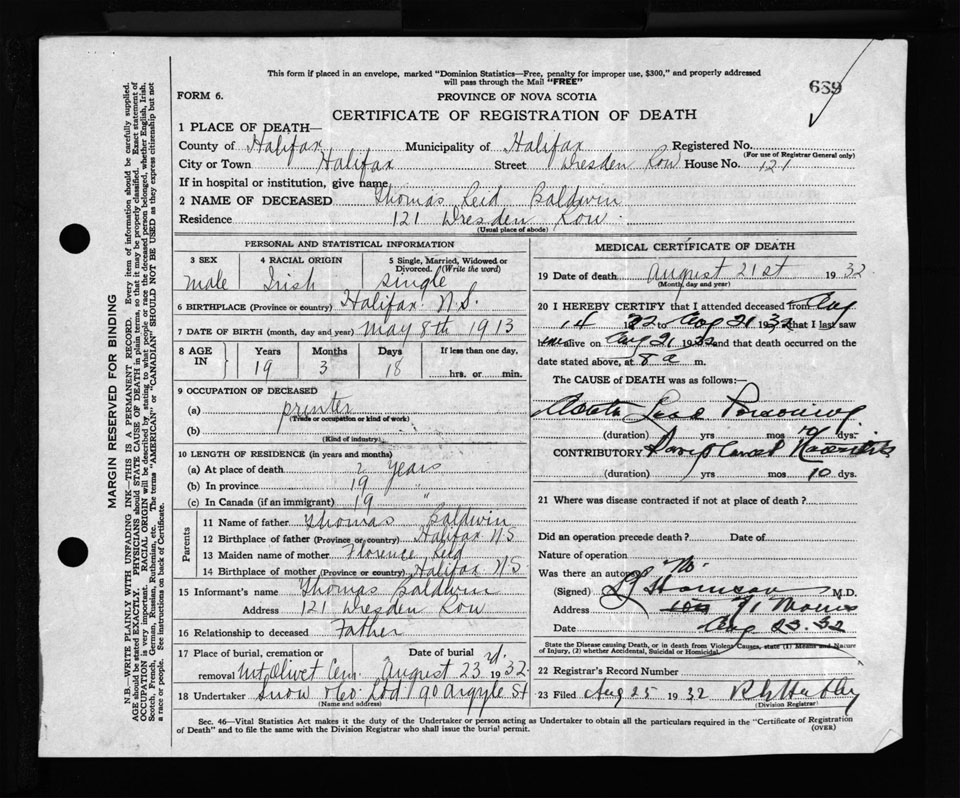 This form if placed in an envelope, marked "Dominion Statistics—Free, penalty for improper use, $300," and properly addressed
will pass through the Mail "FREE"
689
FORM 6.
PROVINCE OF NOVA SCOTIA
CERTIFICATE OF REGISTRATION OF DEATH
1 PLACE OF DEATH—
County of Halifax Municipality of Halifax Registered No.
(For use of Registrar General only)
City or Town Halifax Street Dresden Row House No. 121
If in hospital or institution, give name
2 NAME OF DECEASED Thomas Reid Baldwin
Residence 121 Dresden Row.
(Usual place of abode)
PERSONAL AND STATISTICAL INFORMATION
3 SEX 4 RACIAL ORIGIN 5 Single, Married, Widowed or
Divorced. (Write the word)
Male Irish Single
6 BIRTHPLACE (Province or country) Halifax N.S.
7 DATE OF BIRTH (month, day and year) May 8th 1913
8 AGE IN Years Months Days If less than one day,
19 3 18 hrs. or min.
9 OCCUPATION OF DECEASED
(a) printer
(Trade or occupation or kind of work)
(b)
(Kind of industry)
10 LENGTH OF RESIDENCE (in years and months)
(a) At place of death 2 years
(b) In province 19 "
(c) In Canada (if an immigrant) 19 "
Parents
11 Name of father Thomas Baldwin
12 Birthplace of father (Province or country) Halifax N S
13 Maiden name of mother Florence Reid
14 Birthplace of mother (Province or country) Halifax N S
15 Informant's name Thomas Baldwin
Address 121 Dresden Row
16 Relationship to deceased Father
17 Place of burial, cremation or Date of burial
removal Mt Olivet Cem. August 23rd. 1932.
18 Undertaker Snow & Co. Ltd 90 Argyle St
(Name and address)
MEDICAL CERTIFICATE OF DEATH
19 Date of death August 21st 1932
(Month, day and year)
20 I HEREBY CERTIFY that I attended deceased from Aug
14 1932 to Aug 21 1932 that I last saw
him alive on Aug 21 1932 and that death occurred on the
date stated above, at 8 a m.
The CAUSE OF DEATH was as follows:—
Acute Lead Poisoning
(duration) yrs mos 10 dys.
CONTRIBUTORY
(duration) yrs mos 10 dys.
21 Where was disease contracted if not at place of death?
Did an operation precede death? Date of
Nature of operation
Was there an autopsy No.
(Signed) M.D.
Address 71 Morris
Date Aug 23.32
State the Disease causing Death, or in death from Violent Causes, state (1) Means and Nature
of Injury, (2) whether Accidental, Suicidal or Homicidal.
22 Registrar's Record Number
23 Filed Aug 25 1932
(Division Registrar)
Sec. 46—Vital Statistics Act makes it the duty of the Undertaker or person acting as Undertaker to obtain all the particulars required in the "Certificate of Registration
of Death" and to file the same with the Division Registrar who shall issue the burial permit.
(OVER)
MARGIN RESERVED FOR BINDING
N.B.—WRITE PLAINLY WITH UNFADING INK—THIS IS A PERMANENT RECORD. Every item of information should be carefully supplied.
AGE should be stated EXACTLY. PHYSICIANS should STATE CAUSE OF DEATH in plain terms, so that it may be properly classified. Exact statement of
OCCUPATION is very important. RACIAL ORIGIN will be described by stating to what people or race the deceased person belonged, whether English, Irish,
Scotch, French, German, Russian, Ruthenian, etc. The terms "AMERICAN" or "CANADIAN" SHOULD NOT BE USED as they express citizenship but not
a race or people. See instructions on back of Certificate.